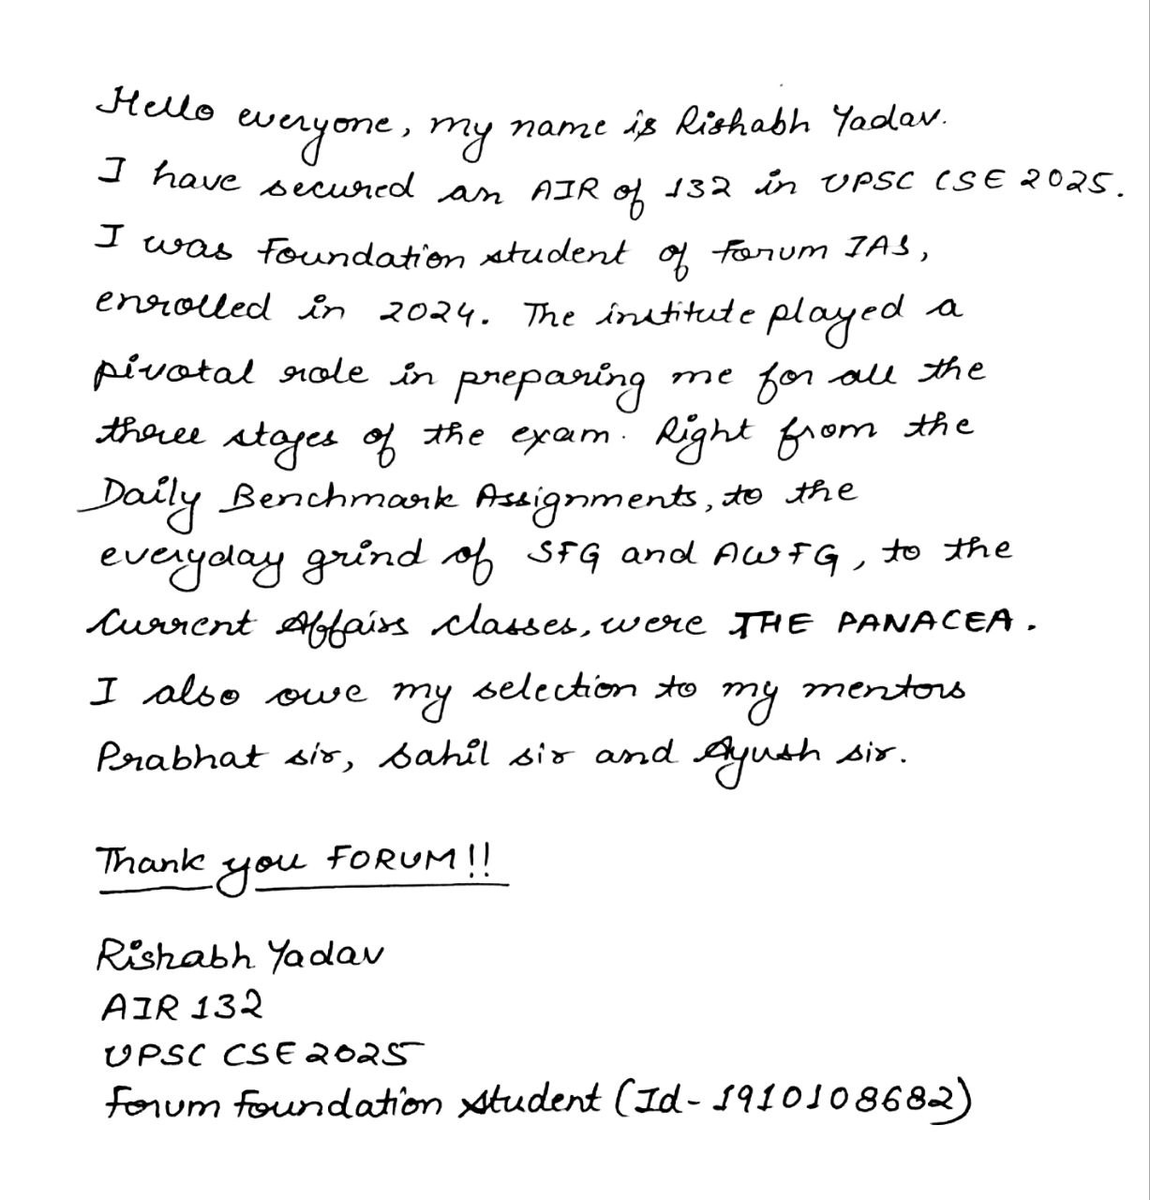 Hello everyone, my name is Rishabh Yadav.
I have secured an AIR of 132 in UPSC CSE 2025.
I was Foundation student of Forum IAS,
enrolled in 2024. The institute played a
pivotal role in preparing me for all the
three stages of the exam. Right from the
Daily Benchmark Assignments, to the
everyday grind of SFG and AWFG, to the
Current Affairs classes, were THE PANACEA.
I also owe my selection to my mentors
Prabhat sir, Sahil sir and Ayush sir.
Thank you FORUM!!
Rishabh Yadav
AIR 132
UPSC CSE 2025
Forum Foundation student (Id- 1910108682)